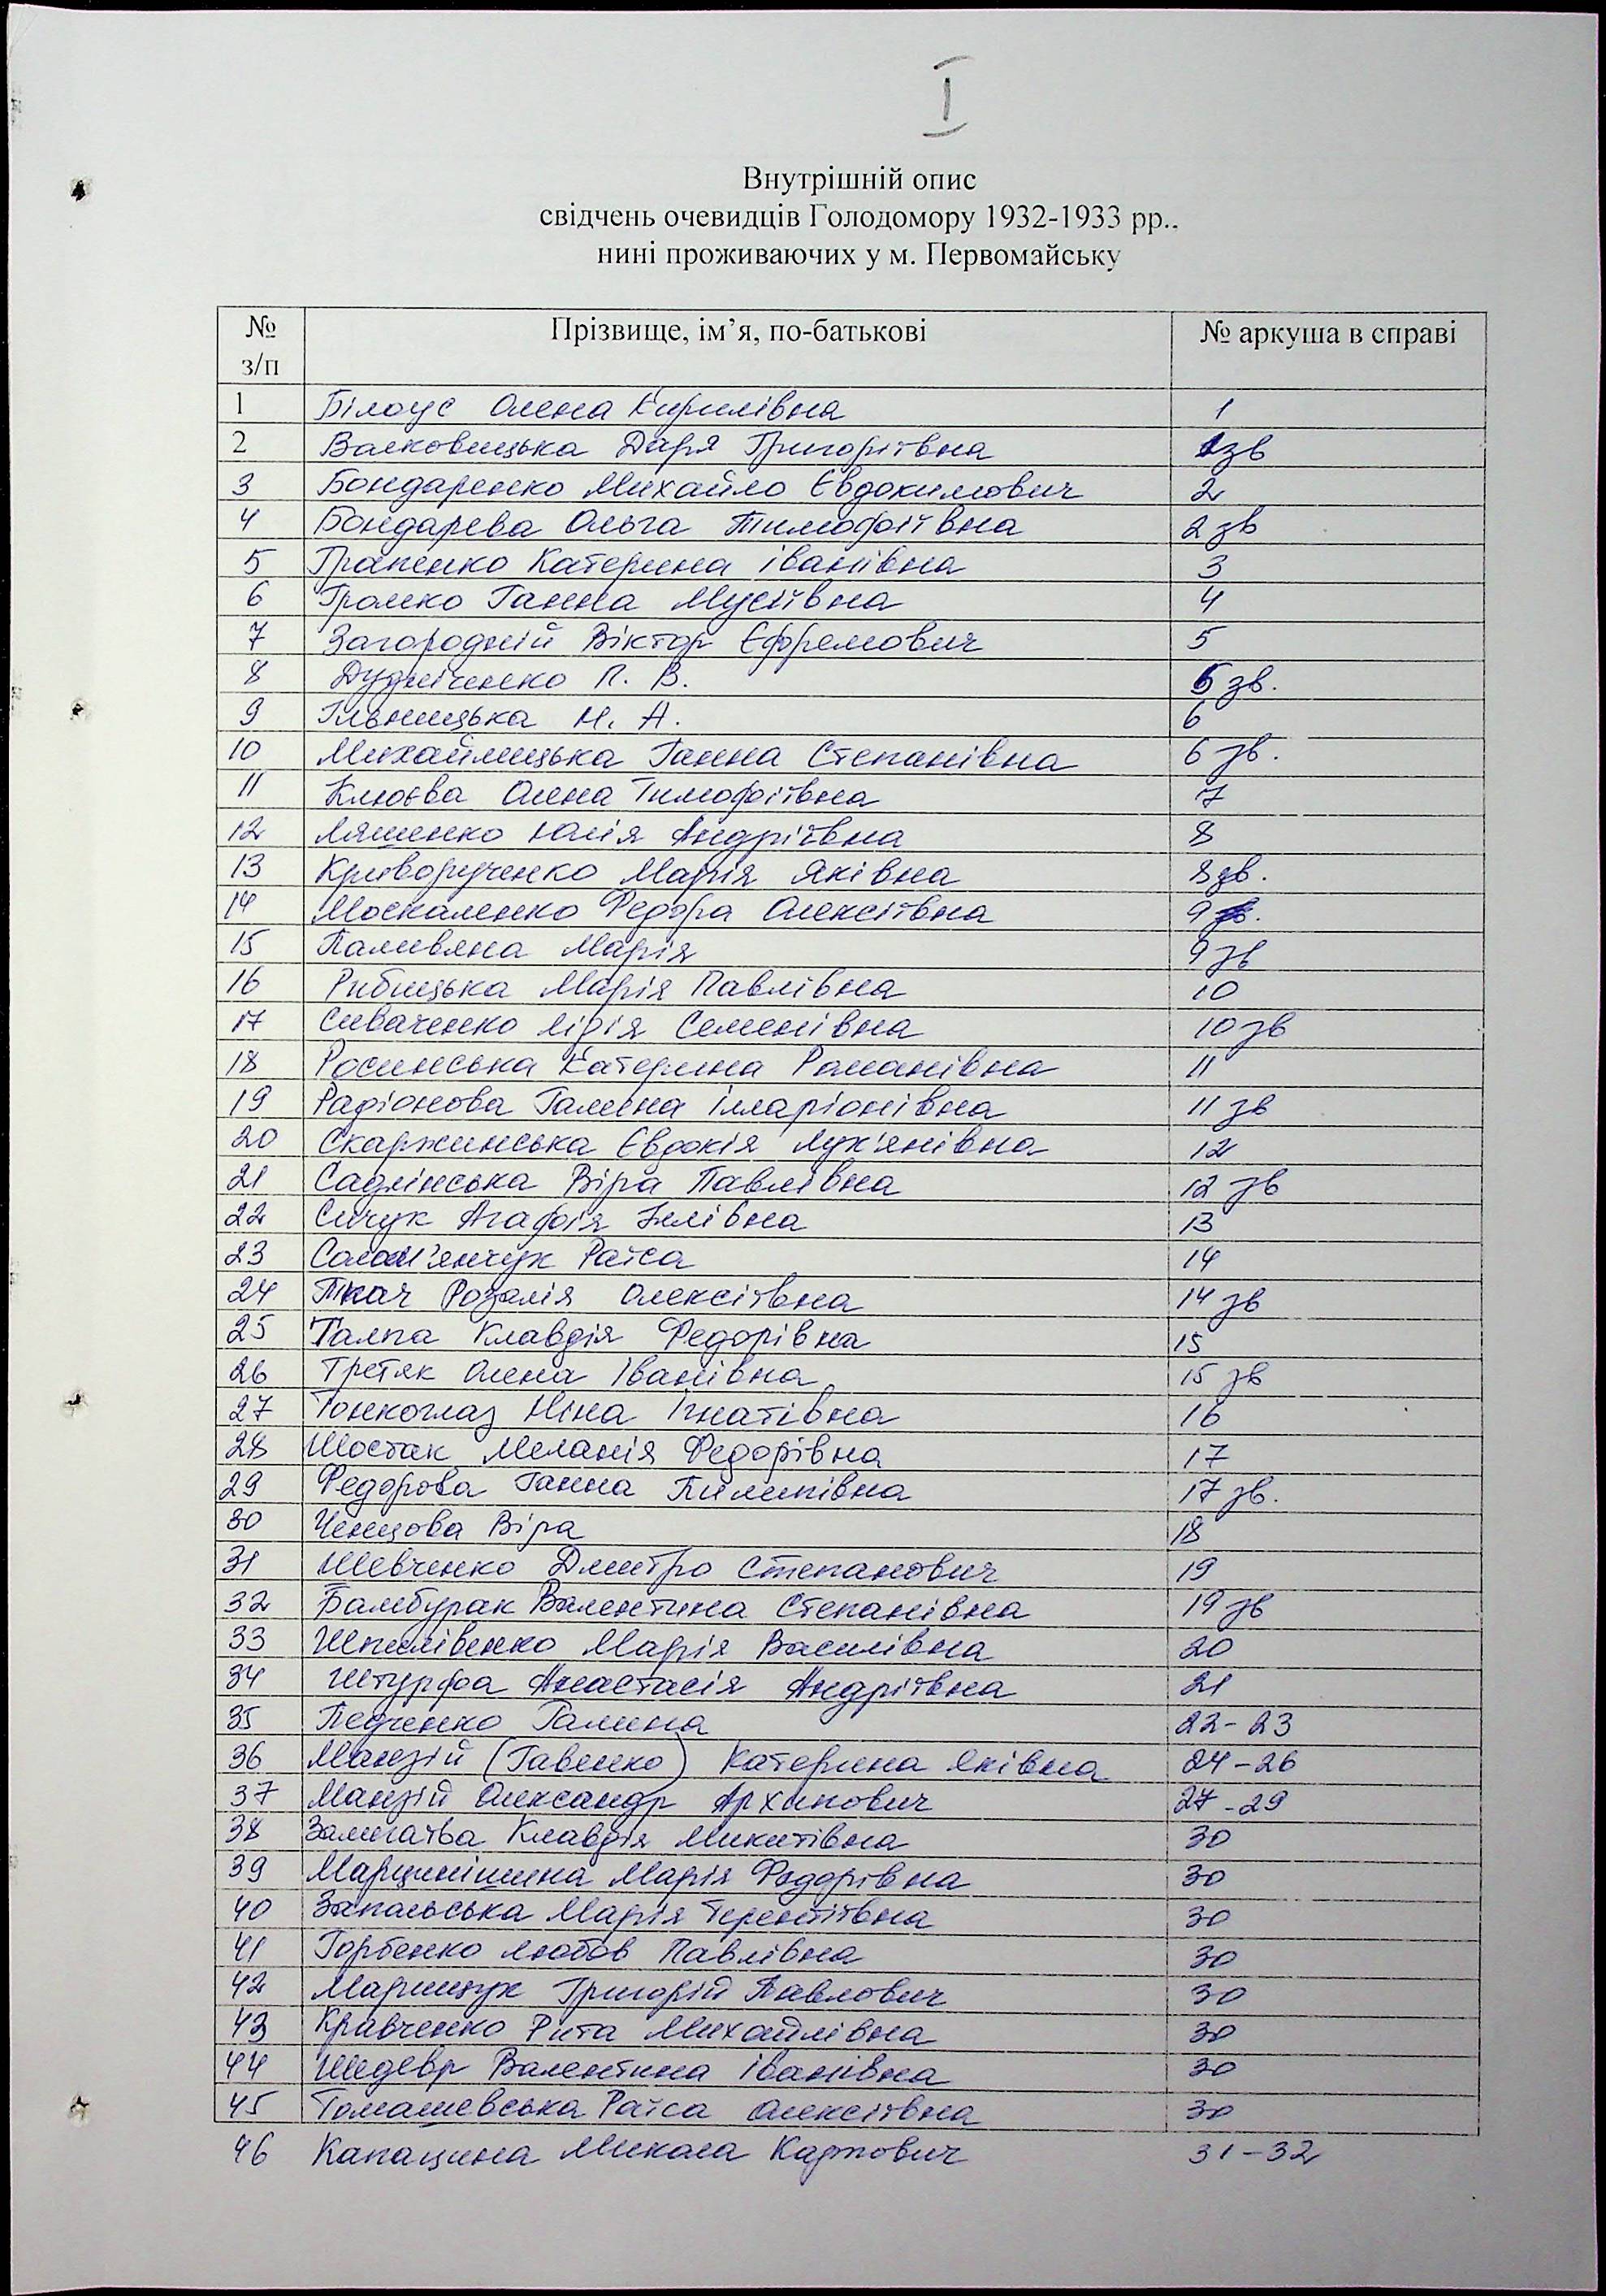 I
Внутрішній опис
свідчень очевидців Голодомору 1932-1933 рр.,
нині проживаючих у м. Первомайську
№ з/п Прізвище, ім’я, по-батькові № аркуша в справі
1 Білоус Олена Кирилівна 1
2 Валковицька Дар'я Григоріївна 1зв
3 Бондаренко Михайло Євдокимович 2
4 Бондарева Ольга Тимофіївна 2 зв
5 Грапенко Катерина Іванівна 3
6 Громко Ганна Мусіївна 4
7 Загородній Віктор Єфремович 5
8 Дудніченко П. В. 5 зв.
9 Гльницька М. А. 6
10 Михайлицька Ганна Степанівна 6 зв.
11 Клюєва Олена Тимофіївна 7
12 Ляшенко Юлія Андріївна 8
13 Криворученко Марія Яківна 8зв.
14 Москаленко Федора Олексіївна 9
15 Паливяна Марія 9 зв
16 Рибицька Марія Павлівна 10
17 Сиваченко Лідія Семенівна 10 зв
18 Росинська Катерина Романівна 11
19 Радіонова Галина Ілларіонівна 11 зв
20 Скаржинська Євдокія Лук'янівна 12
21 Садлінська Віра Павлівна 12 зв
22 Сичук Агафія 13
23 Солом'янчук Раїса 14
24 Ткач Розалія Олексіївна 14 зв
25 Талпа Клавдія Федорівна 15
26 Третяк Олена Іванівна 15 зв
27 Тонкоглаз Ніна Ігнатівна 16
28 Шостак Меланія Федорівна 17
29 Федорова Ганна Пилипівна 17 зв.
30 Ченцова Віра 18
31 Шевченко Дмитро Степанович 19
32 Бамбурак Валентина Степанівна 19 зв
33 Шпилівенко Марія Василівна 20
34 Штурфа Анастасія Андріївна 21
35 Педченко Галина 22-23
36 Манзій (Гавенко) Катерина Яківна 24-26
37 Манзій Олександр Архипович 27-29
38 Клавдія Микитівна 30
39 Марцинішина Марія Федорівна 30
40 Запольська Марія Терентіївна 30
41 Горбенко Любов Павлівна 30
42 Марищук Григорій Павлович 30
43 Кравченко Рита Михайлівна 30
44 Шедевр Валентина Іванівна 30
45 Томашевська Раїса Олексіївна 30
46 Капацина Микола Карпович 31-32